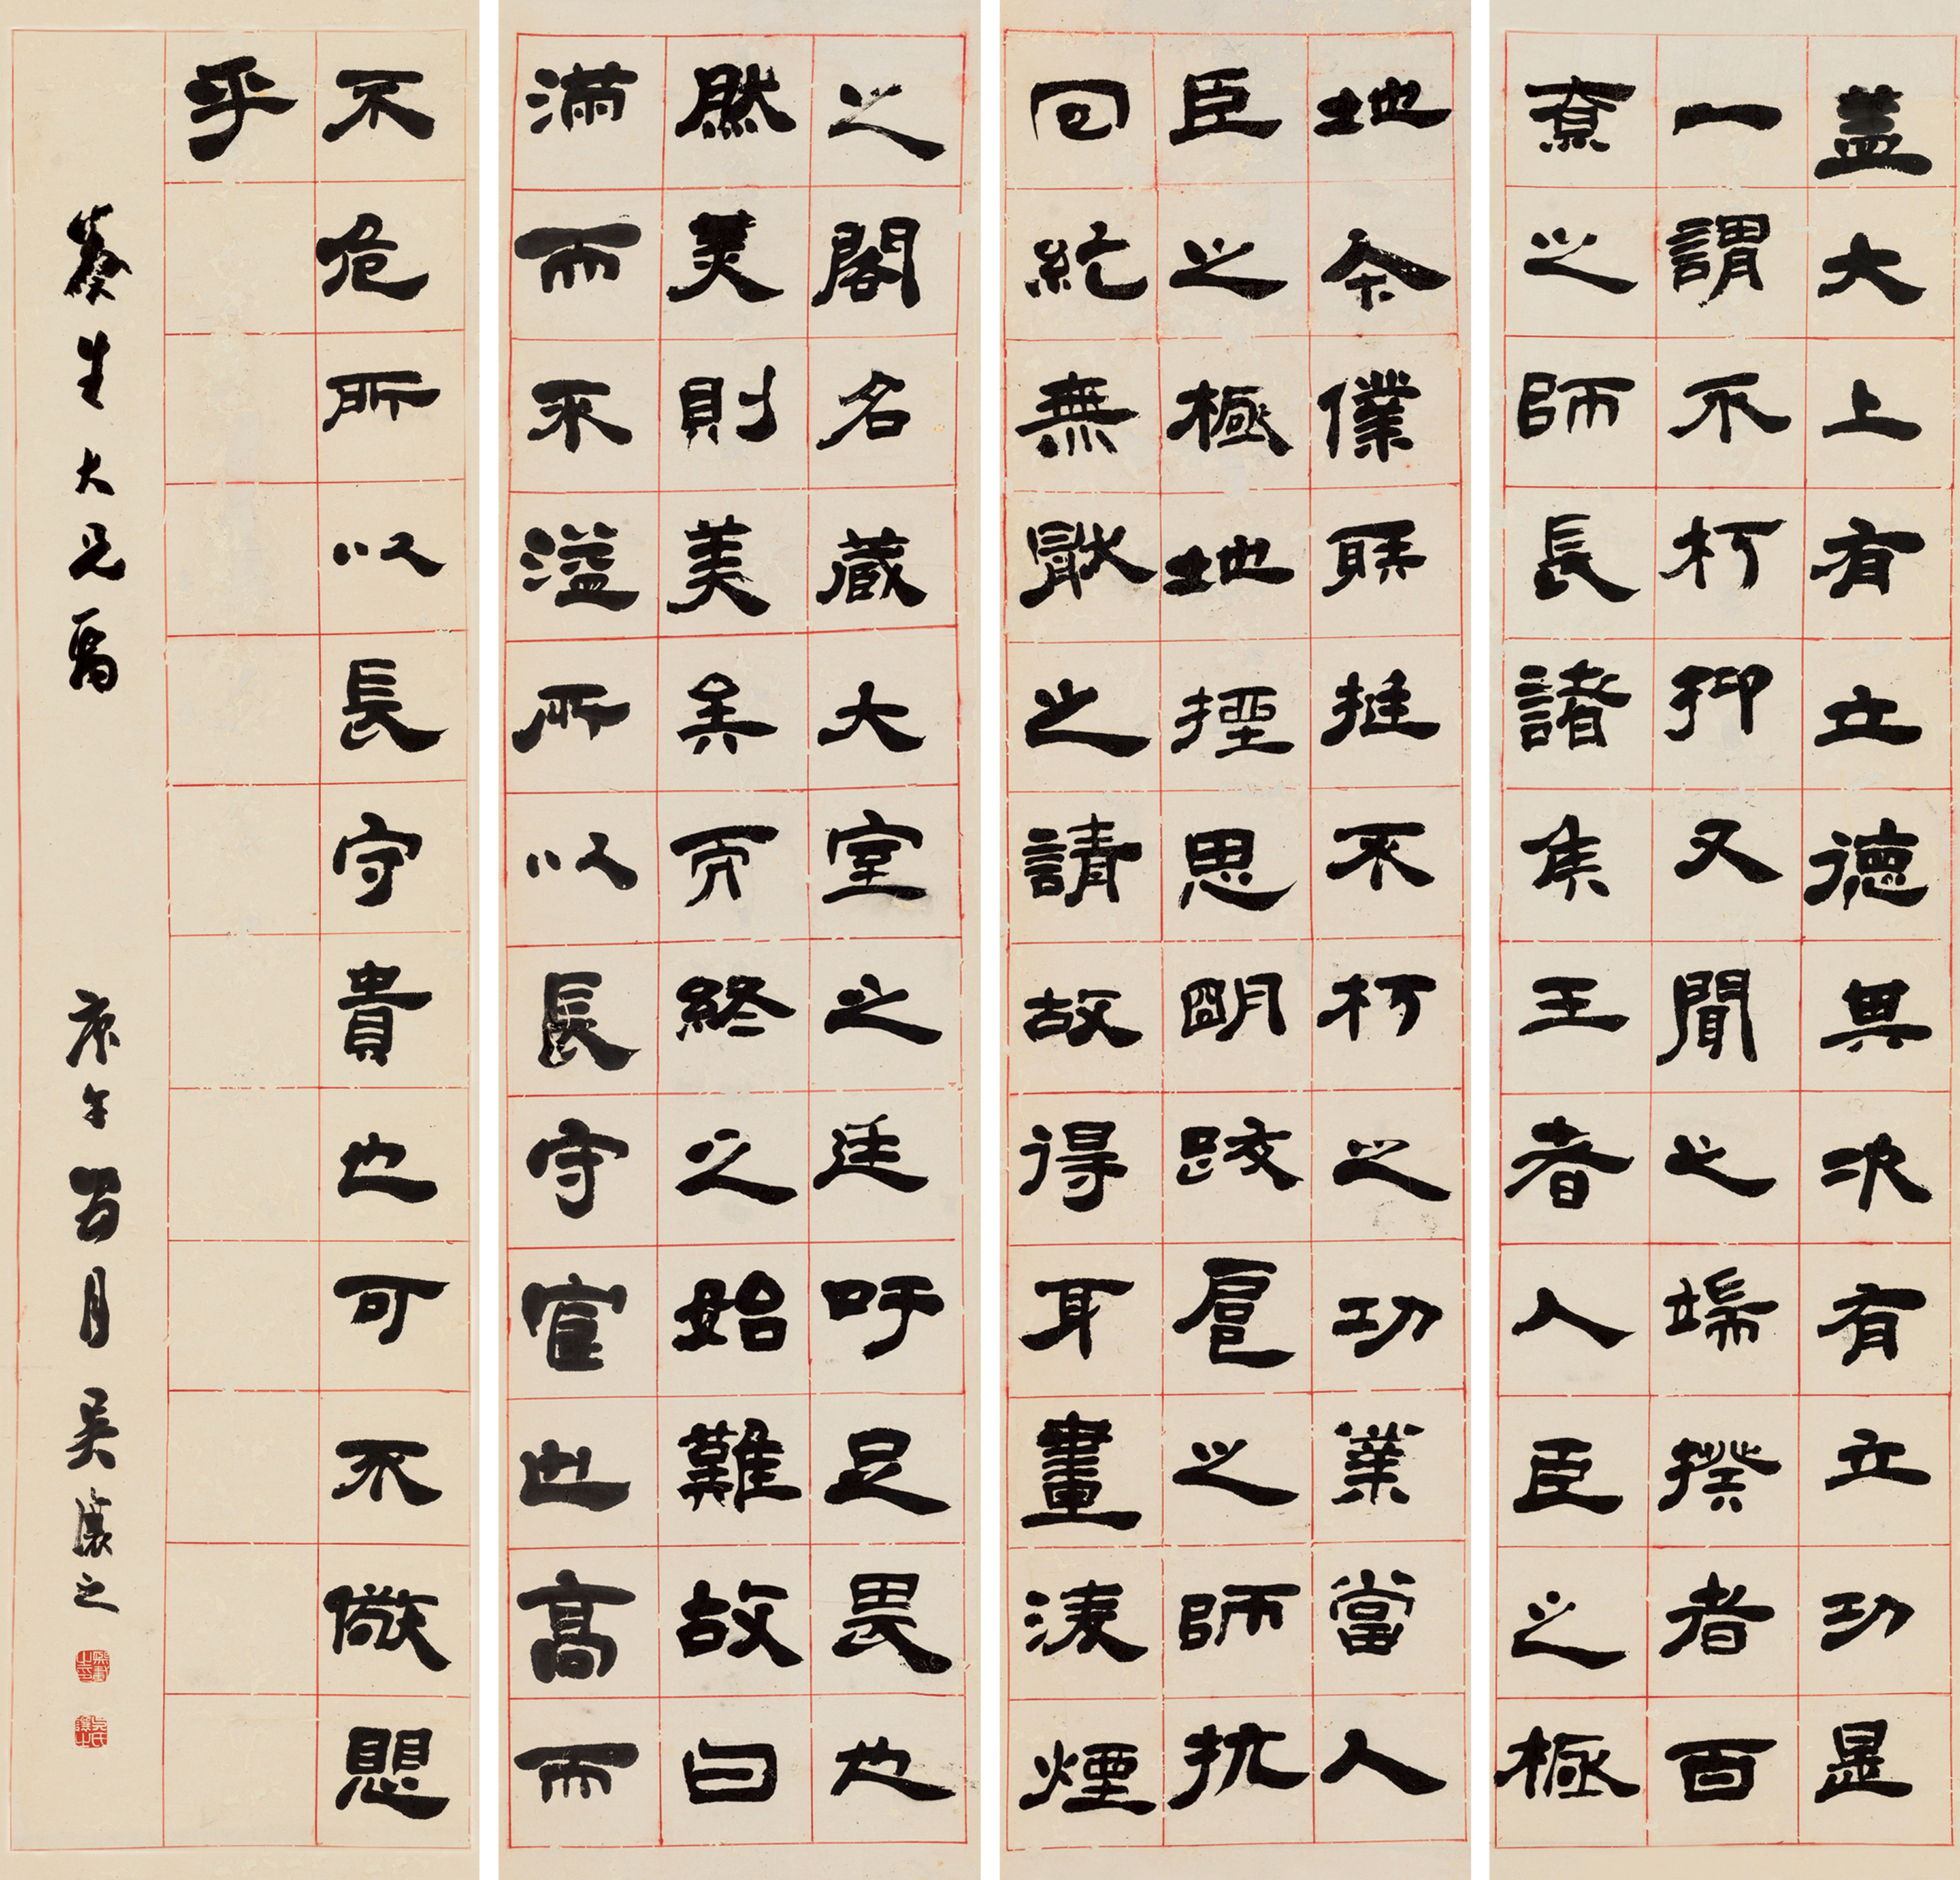 蓋大上有立德其次有立功是
一謂不朽抑又聞之端揆者百
寮之師長諸侯王者人臣之極
地今僕射挺不朽之功業當人
臣之極地挫思明跋扈之師抗
回紇無厭之請故得耳畫凌煙
之閣名藏大室之廷吁足畏也
然美則美矣而終之始難故曰
滿而不溢所以長守富也高而
不危所以長守貴也可不儆懼
乎
葵生大兄屬
庚午月吳讓之
熙載之印
吳氏讓之